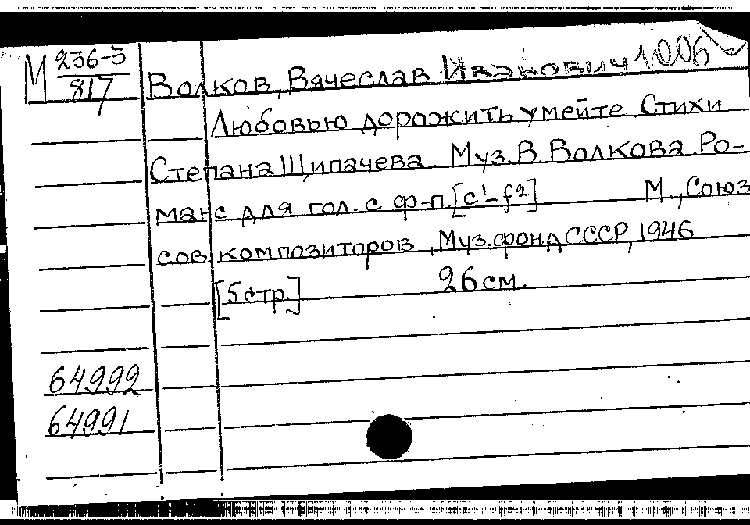 М 236-3
817
Волков, Вячеслав Иванович 1.006
Любовью дорожить умейте Стихи
Степана Щипачева Муз. В Волкова. Ро-
манс для гол. с ф-п. [c¹-f²] М., Союз
сов композиторов, Муз. фонд СССР, 1946
[5 стр.] 26 см.
64992
64991